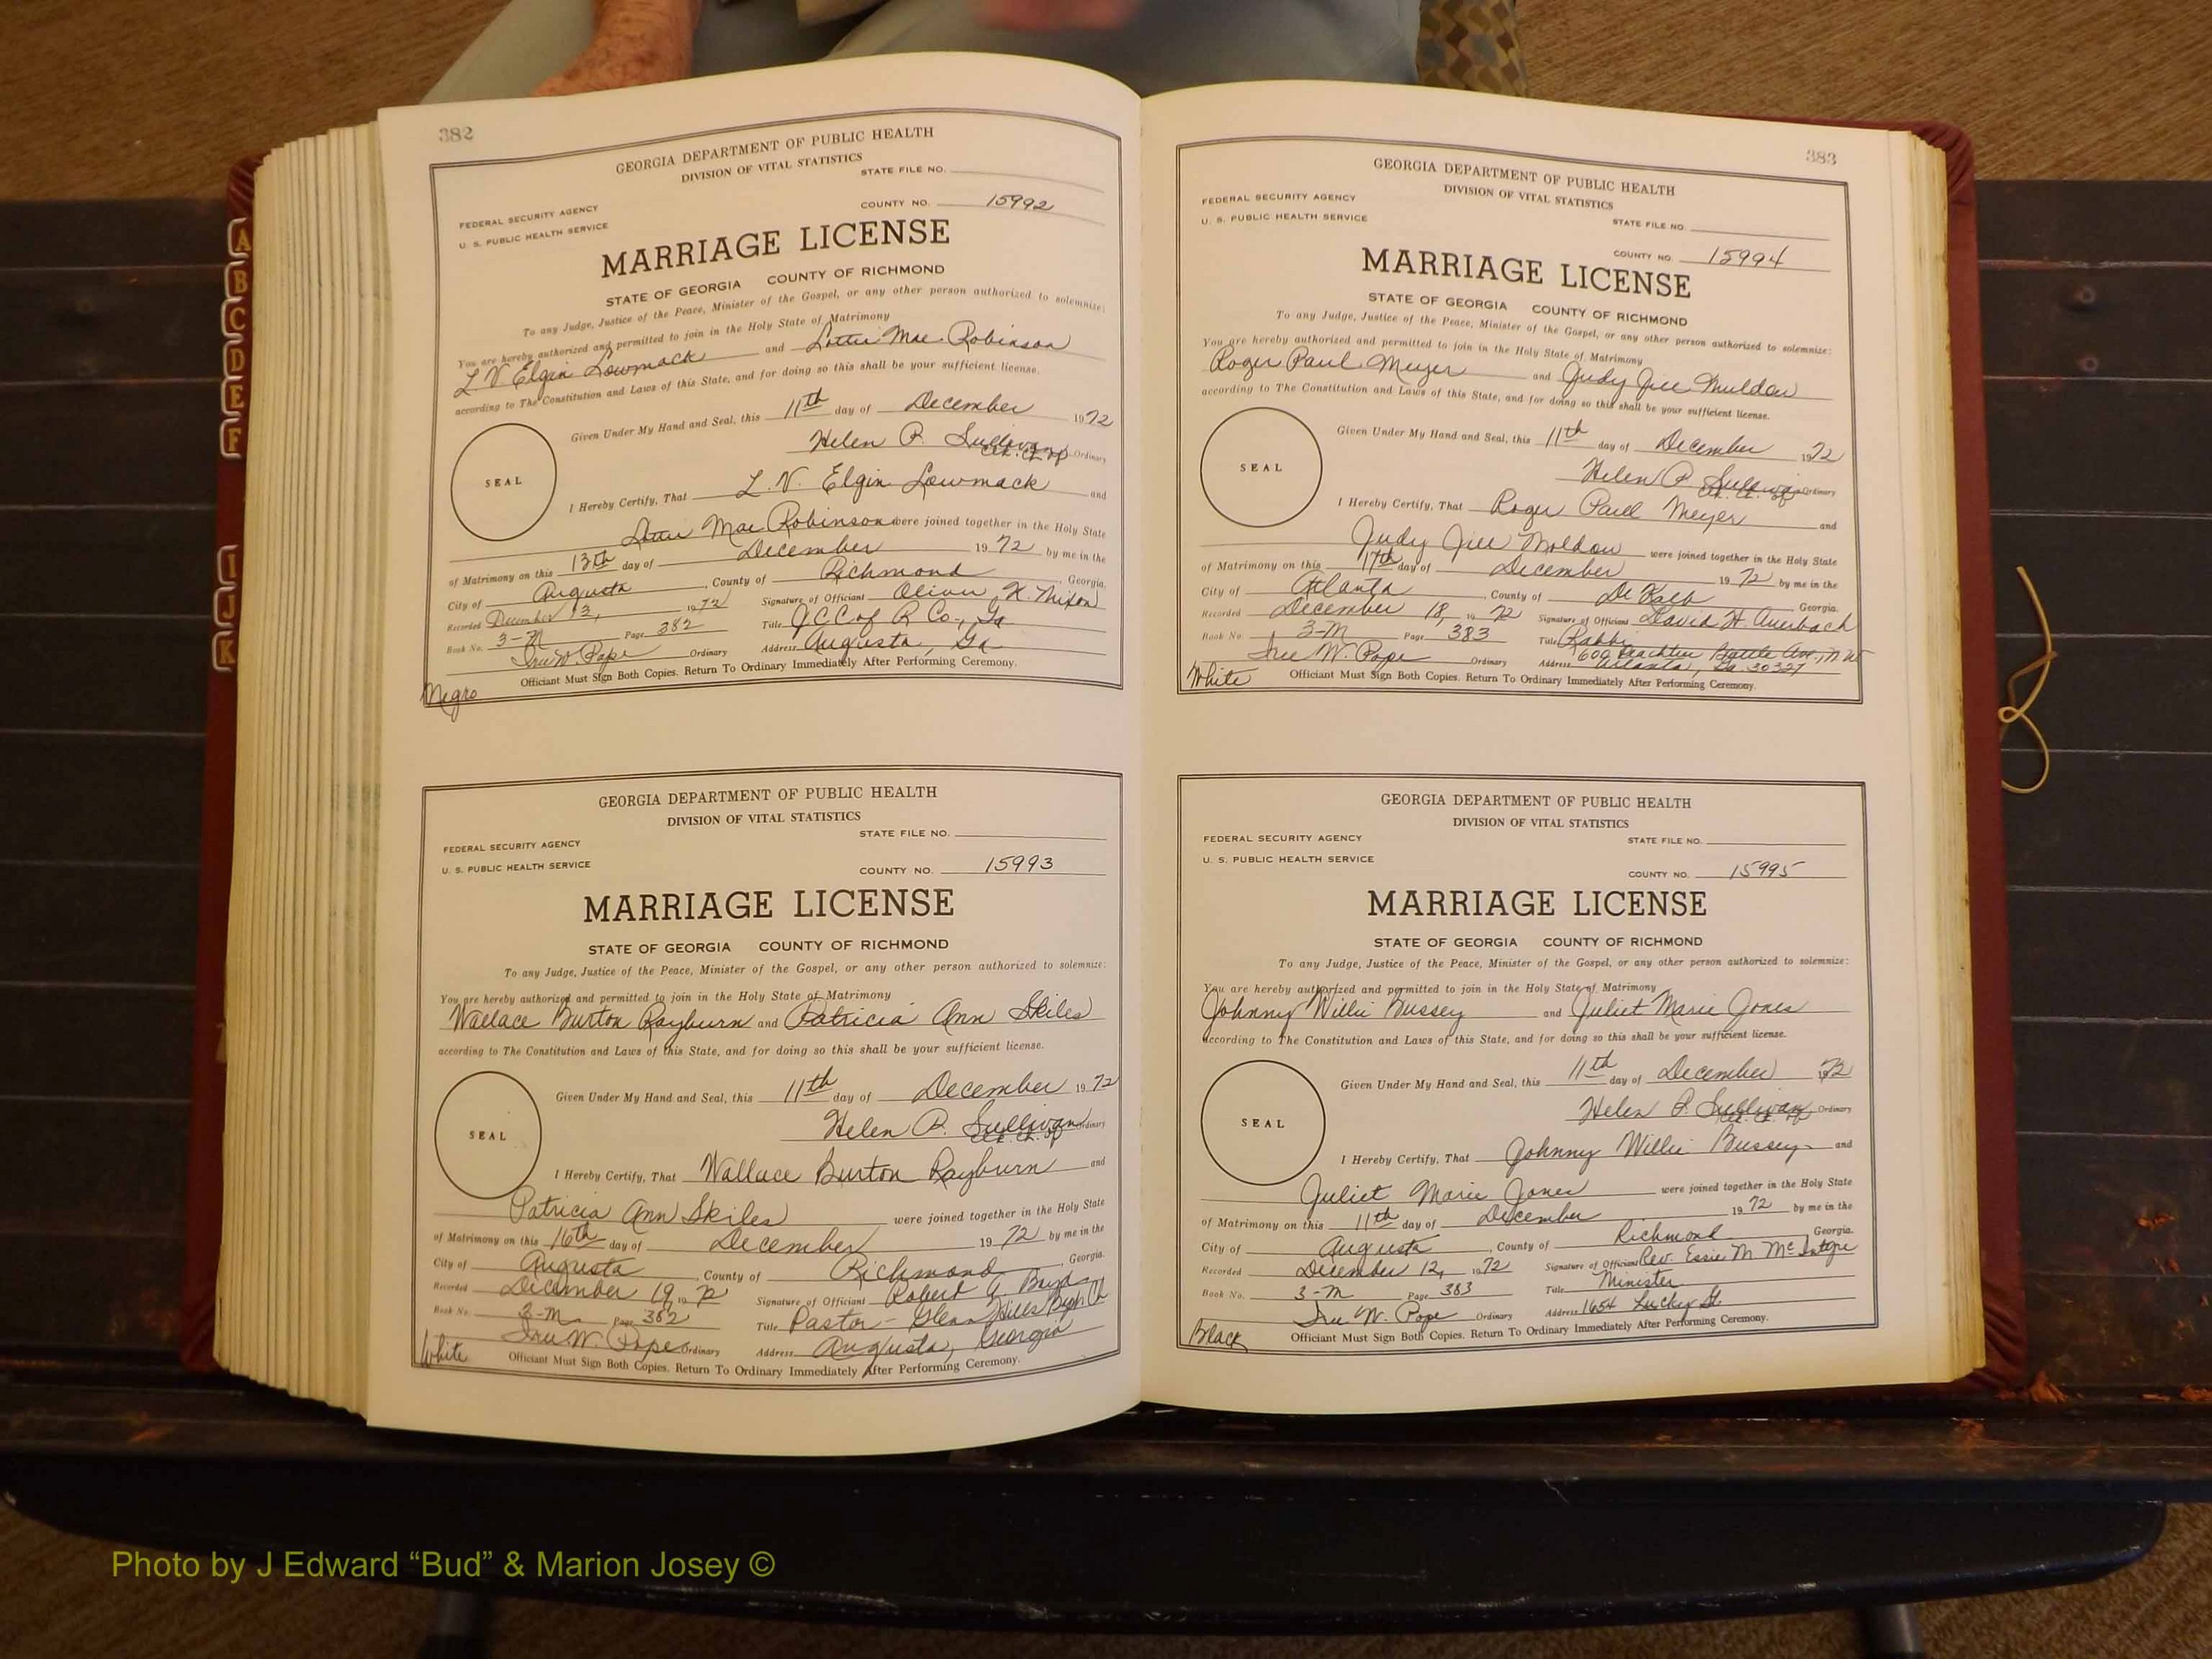 A
B
C
D
E
F
I
J
K
382
GEORGIA DEPARTMENT OF PUBLIC HEALTH
DIVISION OF VITAL STATISTICS
STATE FILE NO.
FEDERAL SECURITY AGENCY
COUNTY NO. 15992
U. S. PUBLIC HEALTH SERVICE
MARRIAGE LICENSE
STATE OF GEORGIA COUNTY OF RICHMOND
To any Judge, Justice of the Peace, Minister of the Gospel, or any other person authorized to solemnize:
You are hereby authorized and permitted to join in the Holy State of Matrimony
L. V. Elgin Lowmack and Lottie Mae Robinson
according to The Constitution and Laws of this State, and for doing so this shall be your sufficient license.
Given Under My Hand and Seal, this 11th day of December 1972
Helen P. Sullivan Ordinary
SEAL
I Hereby Certify, That L. V. Elgin Lowmack and
Lottie Mae Robinson were joined together in the Holy State
of Matrimony on this 13th day of December 1972 by me in the
City of Augusta, County of Richmond, Georgia.
Recorded December 13, 1972 Signature of Official Oliver K. Mixon
Book No. 3-M Page 382 Title J.C.C. of R Co., Ga
Iru W. Pope Ordinary Address Augusta, Ga
Officiant Must Sign Both Copies. Return To Ordinary Immediately After Performing Ceremony.
Negro
GEORGIA DEPARTMENT OF PUBLIC HEALTH
DIVISION OF VITAL STATISTICS
STATE FILE NO.
FEDERAL SECURITY AGENCY
U. S. PUBLIC HEALTH SERVICE
COUNTY NO. 15993
MARRIAGE LICENSE
STATE OF GEORGIA COUNTY OF RICHMOND
To any Judge, Justice of the Peace, Minister of the Gospel, or any other person authorized to solemnize:
You are hereby authorized and permitted to join in the Holy State of Matrimony
Wallace Burton Rayburn and Patricia Ann Skiles
according to The Constitution and Laws of this State, and for doing so this shall be your sufficient license.
Given Under My Hand and Seal, this 11th day of December 1972
Helen P. Sullivan Ordinary
SEAL
I Hereby Certify, That Wallace Burton Rayburn and
Patricia Ann Skiles were joined together in the Holy State
of Matrimony on this 16th day of December 1972 by me in the
City of Augusta, County of Richmond, Georgia.
Recorded December 19, 1972 Signature of Official Robert G. Boyd
Book No. 3-M Page 382 Title Pastor - Glenn Hills Bapt. Ch
Iru W. Pope Ordinary Address Augusta, Georgia
White Officiant Must Sign Both Copies. Return To Ordinary Immediately After Performing Ceremony.
383
GEORGIA DEPARTMENT OF PUBLIC HEALTH
DIVISION OF VITAL STATISTICS
FEDERAL SECURITY AGENCY
U. S. PUBLIC HEALTH SERVICE
STATE FILE NO.
COUNTY NO. 15994
MARRIAGE LICENSE
STATE OF GEORGIA COUNTY OF RICHMOND
To any Judge, Justice of the Peace, Minister of the Gospel, or any other person authorized to solemnize:
You are hereby authorized and permitted to join in the Holy State of Matrimony
Roger Paul Meyer and Judy Jill Muldow
according to The Constitution and Laws of this State, and for doing so this shall be your sufficient license.
Given Under My Hand and Seal, this 11th day of December 1972
Helen P. Sullivan Ordinary
SEAL
I Hereby Certify, That Roger Paul Meyer and
Judy Jill Moldow were joined together in the Holy State
of Matrimony on this 17th day of December 1972 by me in the
City of Atlanta, County of De Kalb, Georgia.
Recorded December 18, 1972 Signature of Official David H. Auerbach
Book No. 3-M Page 383 Title Rabbi
600 Peachtree Battle Ave., N.W.
Iru W. Pope Ordinary Address Atlanta, Ga. 30327
White Officiant Must Sign Both Copies. Return To Ordinary Immediately After Performing Ceremony.
GEORGIA DEPARTMENT OF PUBLIC HEALTH
DIVISION OF VITAL STATISTICS
FEDERAL SECURITY AGENCY
STATE FILE NO.
U. S. PUBLIC HEALTH SERVICE
COUNTY NO. 15995
MARRIAGE LICENSE
STATE OF GEORGIA COUNTY OF RICHMOND
To any Judge, Justice of the Peace, Minister of the Gospel, or any other person authorized to solemnize:
You are hereby authorized and permitted to join in the Holy State of Matrimony
Johnny Willie Bussey and Juliet Marie Jones
according to The Constitution and Laws of this State, and for doing so this shall be your sufficient license.
Given Under My Hand and Seal, this 11th day of December 1972
Helen P. Sullivan Ordinary
SEAL
I Hereby Certify, That Johnny Willie Bussey and
Juliet Marie Jones were joined together in the Holy State
of Matrimony on this 11th day of December 1972 by me in the
City of Augusta, County of Richmond Georgia.
Recorded December 12, 1972 Signature of Official Rev. Essie M. McIntyre
Book No. 3-M Page 383 Title Minister
Iru W. Pope Ordinary Address 1654 Luckey St.
Black Officiant Must Sign Both Copies. Return To Ordinary Immediately After Performing Ceremony.
Photo by J Edward “Bud” & Marion Josey ©